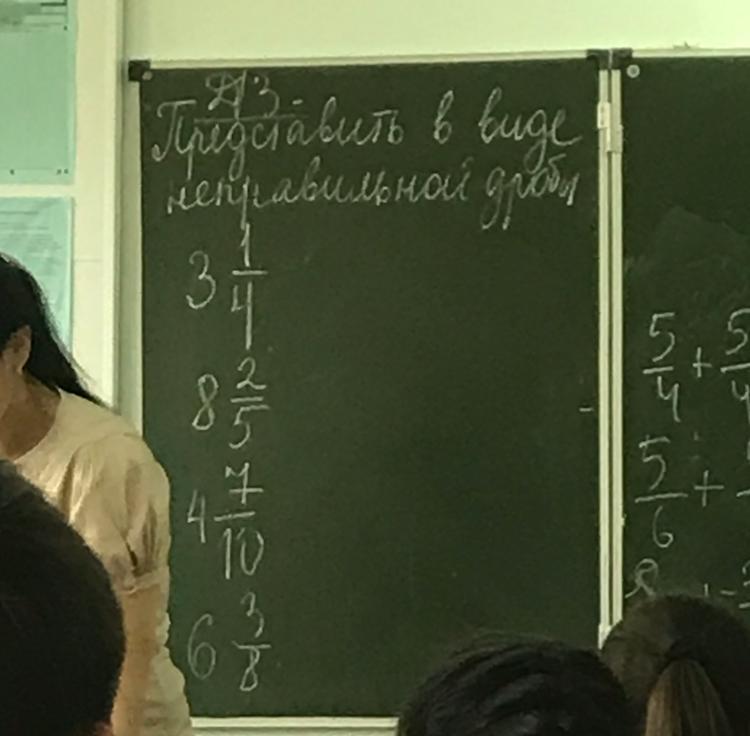 ДЗ.
Представить в виде
неправильной дроби
3 1/4
8 2/5
4 7/10
6 3/8
5/4 + 5/4
5/6 +